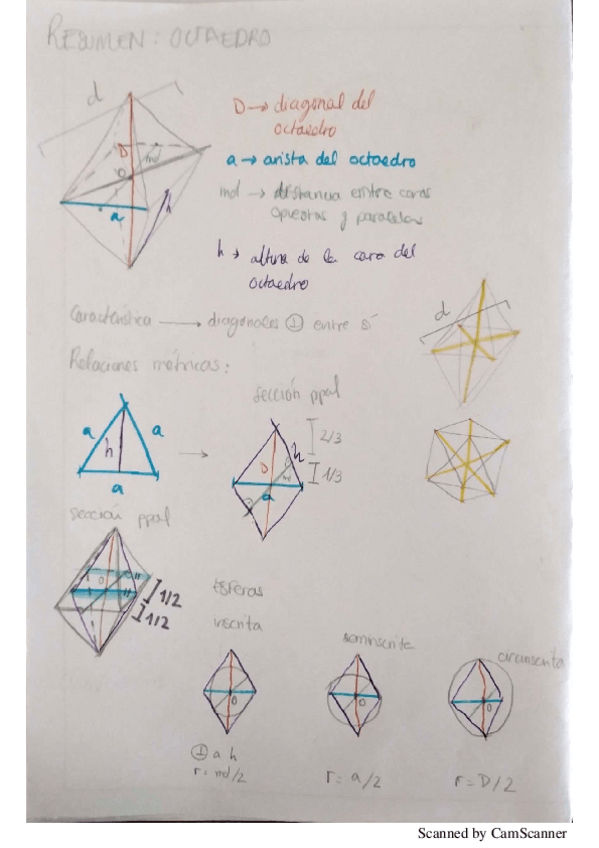 RESUMEN: OCTAEDRO
d
D → diagonal del
octaedro
D
md
O
a → arista del octaedro
a
h
md → distancia entre caras
opuestas y paralelas
h → altura de la cara del
octaedro
Característica → diagonales ⊥ entre sí
d
Relaciones métricas:
sección ppal
a
h
a
a
→
2/3
h
D
md
1/3
a
sección ppal
O
1/2
1/2
Esferas
inscrita
seminscrita
circunscrita
O
O
O
⊥ a h
r = md/2
r = a/2
r = D/2
Scanned by CamScanner